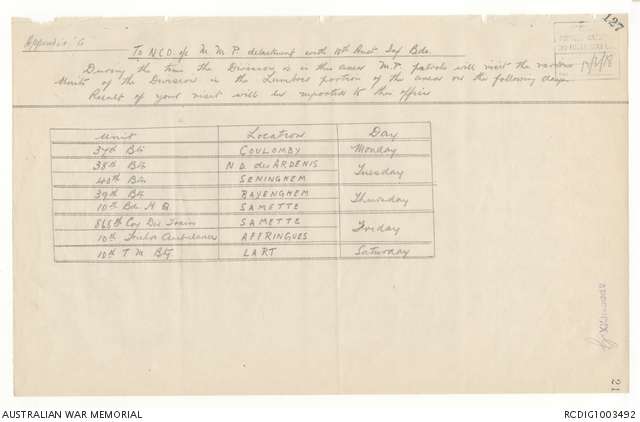 127
Appendix G
To N.C.O. i/c M.M.P. detachment with 10th Aust Inf Bde.
During the time the Division is in this area M.P. patrols will visit the various
Units of the Division in the Lumbres portion of the area on the following days.
Result of your visit will be reported to this office
Unit Location Day
37th Btn COULOMBY Monday
38th Btn N.D. des ARDENIS Tuesday
40th Btn SENINGHEM
39th Btn BAYENGHEM Thursday
10th Bde H Q SAMETTE
868th Coy Div Train SAMETTE Friday
10th Ambulance AFFRINGUES
10th T M Bty LART Saturday
APPENDIX
21
AUSTRALIAN WAR MEMORIAL
RCDIG1003492